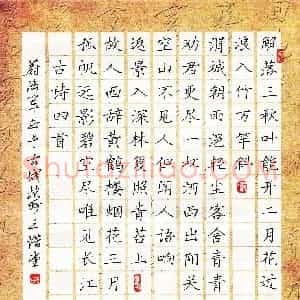 解落三秋叶能开二月花过
浪入竹万竿斜
渭城朝雨浥轻尘客舍青青
劝君更尽一杯酒西出阳关
空山不见人但闻人语响
返景入深林复照青苔上
故人西辞黄鹤楼烟花三月
孤帆远影碧空尽唯见长江
古诗四首